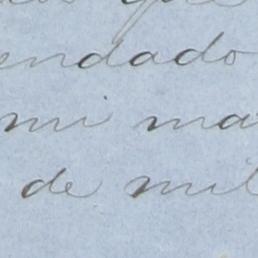 que
endado
mi ma
de mil